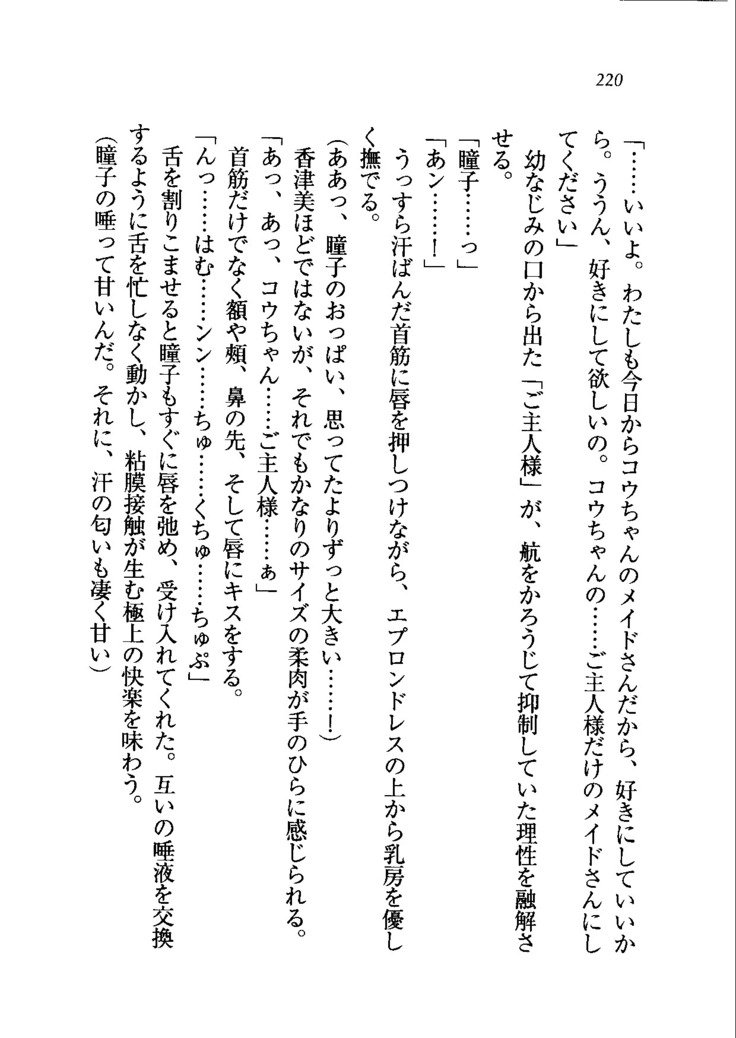 220
「……いいよ。わたしも今日からコウちゃんのメイドさんだから、好きにしていいか
ら。ううん、好きにして欲しいの。コウちゃんの……ご主人様だけのメイドさんにし
てください」
幼なじみの口から出た「ご主人様」が、航をかろうじて抑制していた理性を融解さ
せる。
「瞳子……っ」
「あン……！」
うっすら汗ばんだ首筋に唇を押しつけながら、エプロンドレスの上から乳房を優し
く撫でる。
（ああっ、瞳子のおっぱい、思ってたよりずっと大きい……！）
香津美ほどではないが、それでもかなりのサイズの柔肉が手のひらに感じられる。
「あっ、あっ、コウちゃん……ご主人様……ぁ」
首筋だけでなく額や頰、鼻の先、そして唇にキスをする。
「んっ……はむ……ンン……ちゅ……くちゅ……ちゅぷ」
舌を割りこませると瞳子もすぐに唇を弛め、受け入れてくれた。互いの唾液を交換
するように舌を忙しなく動かし、粘膜接触が生む極上の快楽を味わう。
（瞳子の唾って甘いんだ。それに、汗の匂いも凄く甘い）